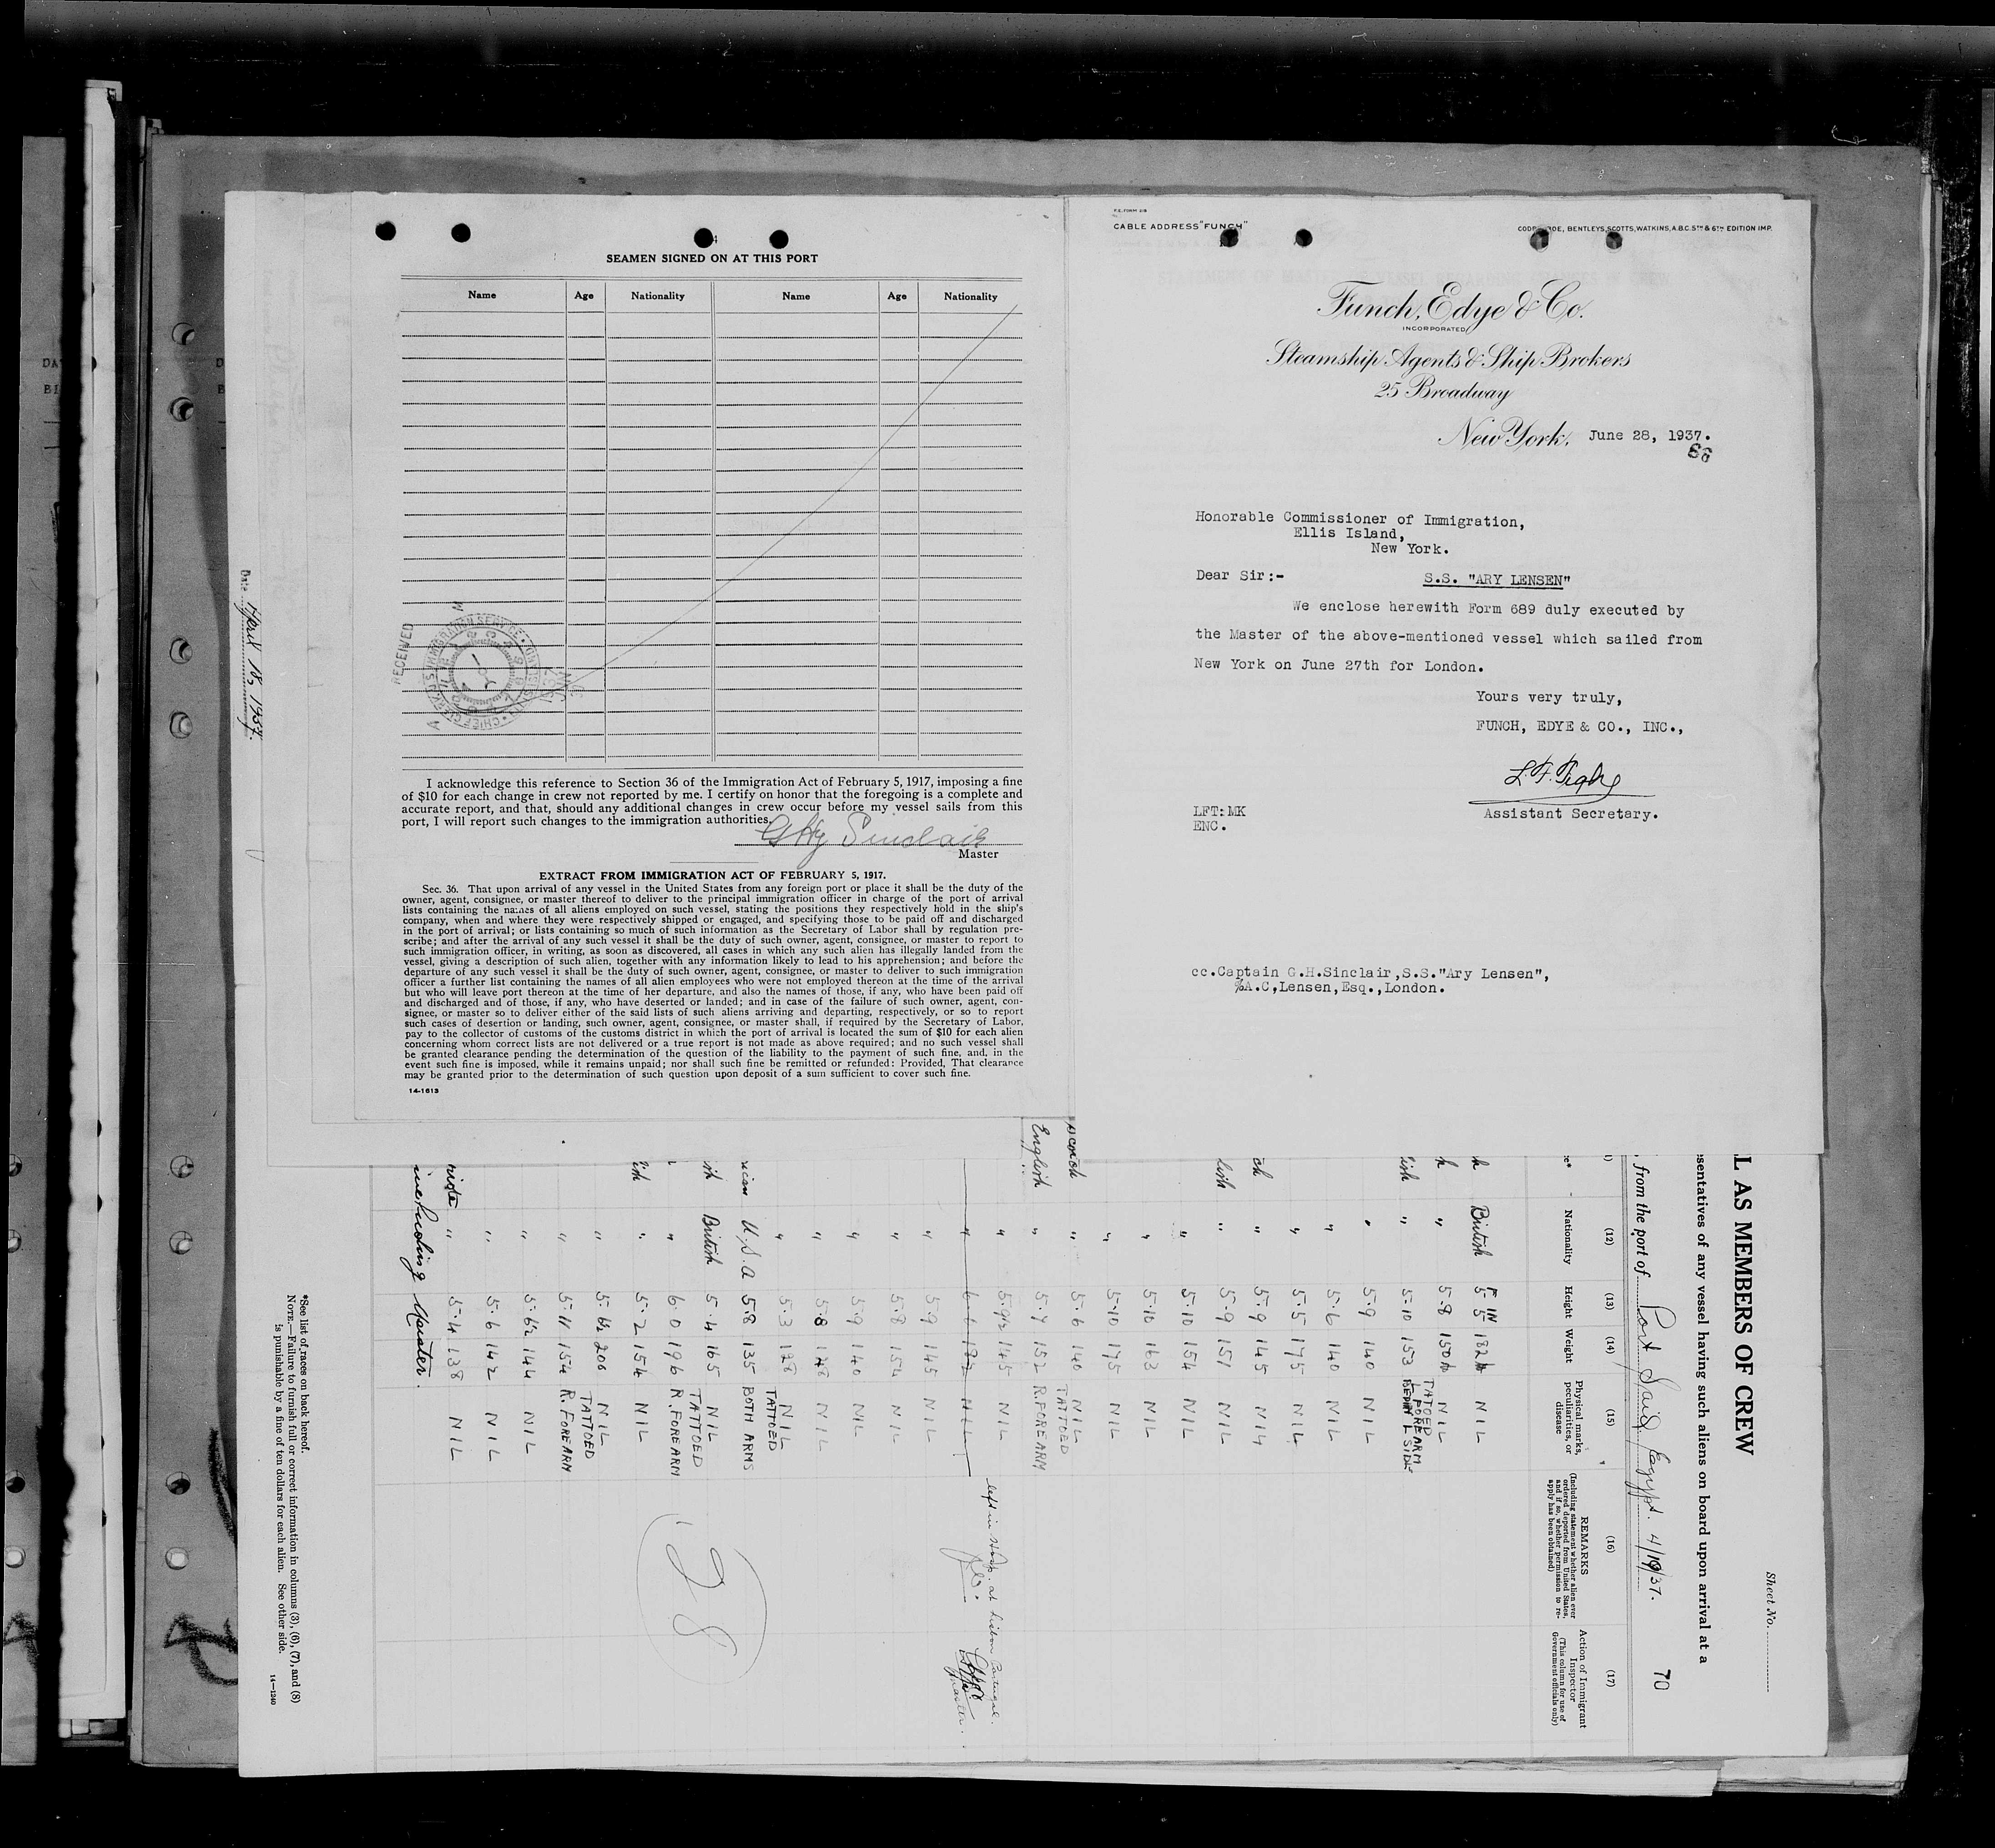 SEAMEN SIGNED ON AT THIS PORT
Name Age Nationality Name Age Nationality
RECEIVED
I acknowledge this reference to Section 36 of the Immigration Act of February 5, 1917, imposing a fine
of $10 for each change in crew not reported by me. I certify on honor that the foregoing is a complete and
accurate report, and that, should any additional changes in crew occur before my vessel sails from this
port, I will report such changes to the immigration authorities.
Sinclair
Master
EXTRACT FROM IMMIGRATION ACT OF FEBRUARY 5, 1917.
Sec. 36. That upon arrival of any vessel in the United States from any foreign port or place it shall be the duty of the
owner, agent, consignee, or master thereof to deliver to the principal immigration officer in charge of the port of arrival
lists containing the names of all aliens employed on such vessel, stating the positions they respectively hold in the ship's
company, when and where they were respectively shipped or engaged, and specifying those to be paid off and discharged
in the port of arrival; or lists containing so much of such information as the Secretary of Labor shall by regulation pre-
scribe; and after the arrival of any such vessel it shall be the duty of such owner, agent, consignee, or master to report to
such immigration officer, in writing, as soon as discovered, all cases in which any such alien has illegally landed from the
vessel, giving a description of such alien, together with any information likely to lead to his apprehension; and before the
departure of any such vessel it shall be the duty of such owner, agent, consignee, or master to deliver to such immigration
officer a further list containing the names of all alien employees who were not employed thereon at the time of the arrival
but who will leave port thereon at the time of her departure, and also the names of those, if any, who have been paid off
and discharged and of those, if any, who have deserted or landed; and in case of the failure of such owner, agent, con-
signee, or master so to deliver either of the said lists of such aliens arriving and departing, respectively, or so to report
such cases of desertion or landing, such owner, agent, consignee, or master shall, if required by the Secretary of Labor,
pay to the collector of customs of the customs district in which the port of arrival is located the sum of $10 for each alien
concerning whom correct lists are not delivered or a true report is not made as above required; and no such vessel shall
be granted clearance pending the determination of the question of the liability to the payment of such fine, and, in the
event such fine is imposed, while it remains unpaid; nor shall such fine be remitted or refunded: Provided, That clearance
may be granted prior to the determination of such question upon deposit of a sum sufficient to cover such fine.
14-1613
CABLE ADDRESS "FUNCH"
BENTLEYS, SCOTTS, WATKINS, A.B.C. 5TH & 6TH EDITION IMP.
Funch, Edye & Co.
INCORPORATED
Steamship Agents & Ship Brokers
25 Broadway
New York, June 28, 1937.
Honorable Commissioner of Immigration,
Ellis Island,
New York.
Dear Sir:- S.S. "ARY LENSEN"
We enclose herewith Form 689 duly executed by
the Master of the above-mentioned vessel which sailed from
New York on June 27th for London.
Yours very truly,
FUNCH, EDYE & CO., INC.,
Assistant Secretary.
LFT:MK
ENC.
cc.Captain G.H.Sinclair,S.S."Ary Lensen",
%A.C,Lensen,Esq.,London.
Date April 18, 1937.
Sheet No.
L AS MEMBERS OF CREW
sentatives of any vessel having such aliens on board upon arrival at a
, from the port of Port Said, Egypt. 4/19/37. 70
(12) (13) (14) (15) (16) (17)
Nationality Height Weight Physical marks, peculiarities, or disease
REMARKS
(Including statement whether alien ever ordered deported from United States, and if so, whether permission to re-apply has been obtained)
Action of Immigrant Inspector
(This column for use of Government officials only)
British 5 5 182 NIL
" 5.8 150 NIL
TATOED L FOREARM
" 5.10 153
" 5.9 140 NIL
" 5.6 140 NIL
" 5.5 175 NIL
" 5.9 145 NIL
" 5.9 151 NIL
" 5.10 154 NIL
" 5.10 163 NIL
" 5.10 175 NIL
" 5.6 140 NIL
English " 5.7 152 TATTOED R.FOREARM
" 5.9½ 145 NIL
left in Hosp. at Lisbon Portugal.
Master.
" 5.9 145 NIL
" 5.8 154 NIL
" 5.9 140 NIL
" 5.8 NIL
" 5.3 128 NIL
U.S.A 5.8 135 TATTOED BOTH ARMS
British 5.4 165 NIL
" 6.0 196 TATTOED R.FOREARM
" 5.2 154 NIL
" 5.6½ 200 NIL
" 5.11 154 TATTOED R.FOREARM
" 5.6½ 144 NIL
" 5.6 142 NIL
" 5.4 138 NIL
28
including Master.
*See list of races on back hereof.
NOTE.—Failure to furnish full or correct information in columns (3), (6), (7), and (8)
is punishable by a fine of ten dollars for each alien. See other side.
14-1240